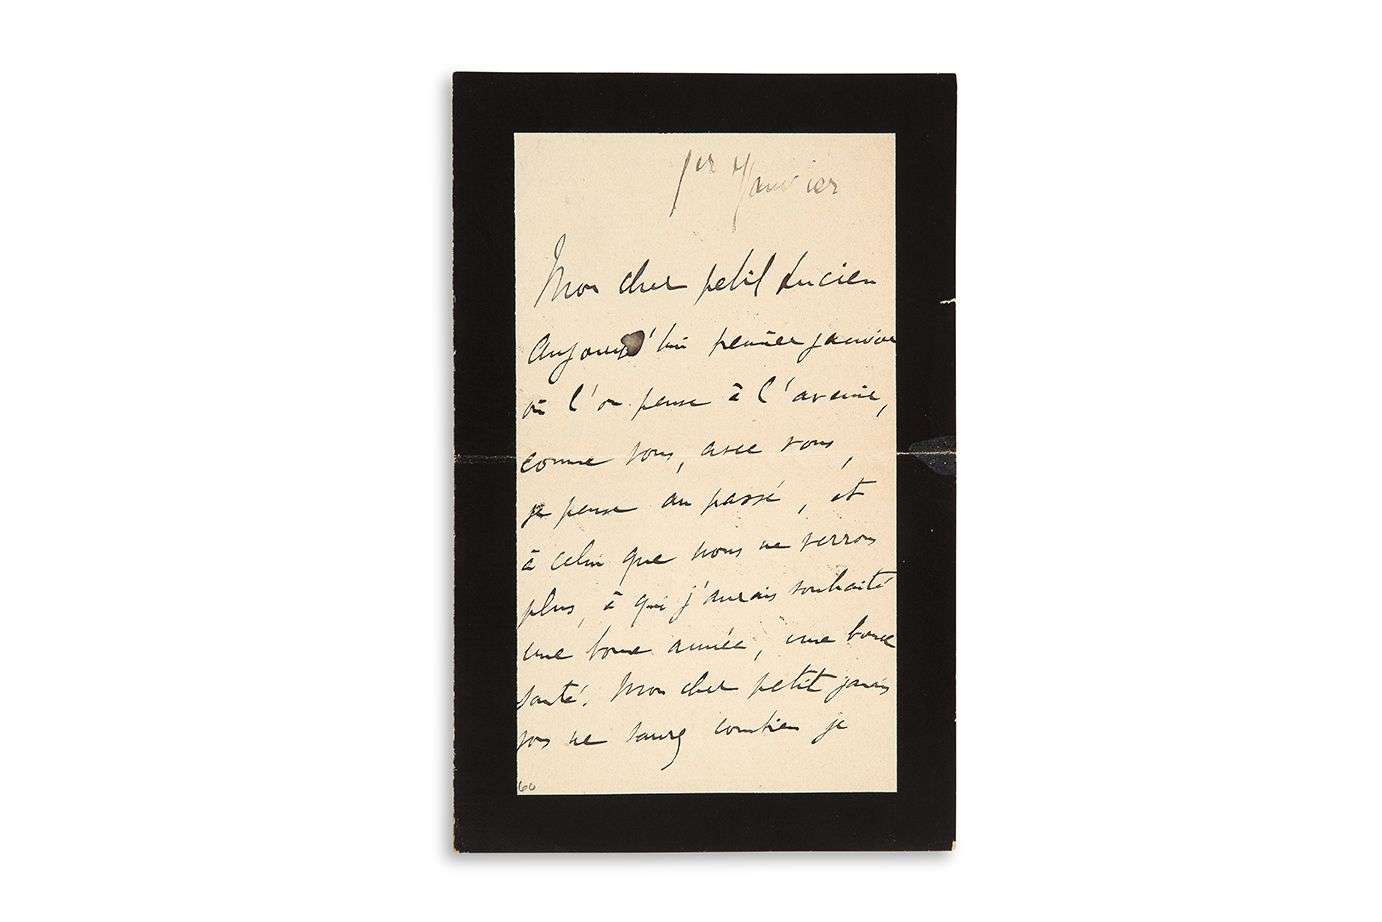 1er Janvier
Mon cher petit Lucien
Aujourd'hui premier janvier
où l'on pense à l'avenir,
comme vous, avec vous,
je pense au passé, et
à celui que nous ne verrons
plus, à qui j'aurais souhaité
une bonne année, une bonne
santé. Mon cher petit jamais
vous ne saurez combien je
60